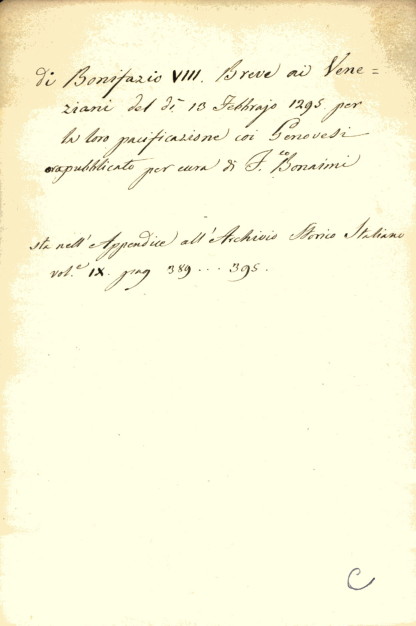 di Bonifazio VIII. Breve ai Vene=
ziani del dì 13 Febbrajo 1295 per
la loro pacificazione coi Genovesi
ora pubblicato per cura di F.co Bonaini
sta nell'Appendice all'Archivio Storico Italiano
vol.e IX. pag 389...395.
C